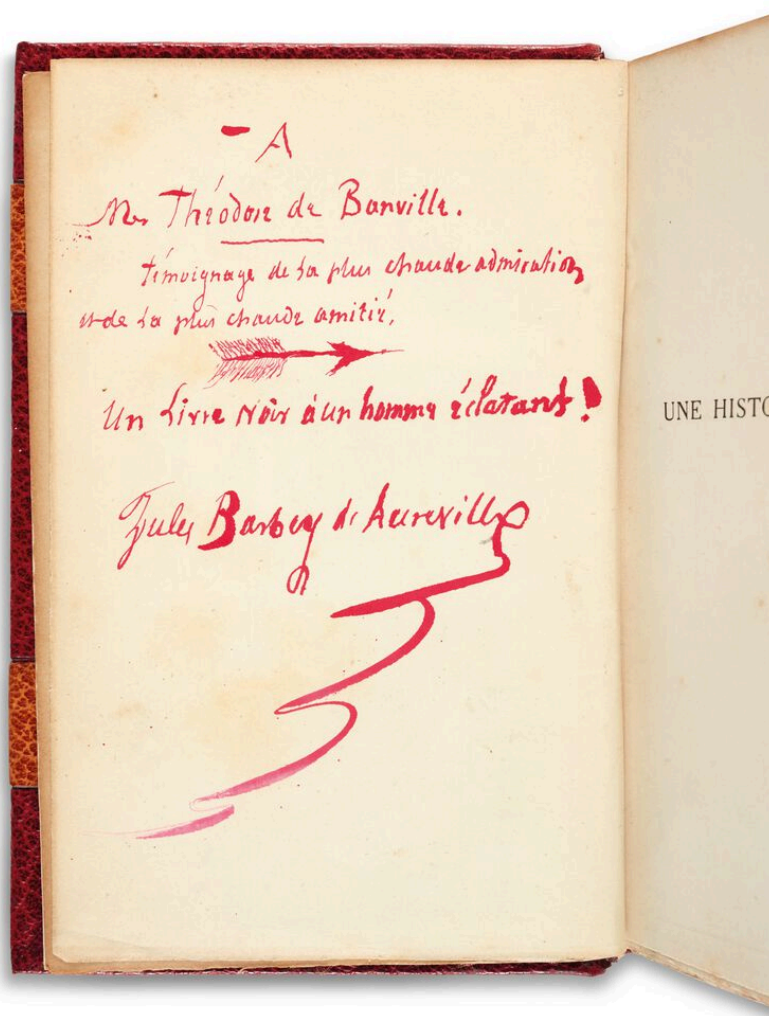 - A
Mr Théodore de Banville.
témoignage de la plus chaude admiration
et de la plus chaude amitié,
Un Livre noir à un homme éclatant!
Jules Barbey d'Aurevilly
UNE HISTO